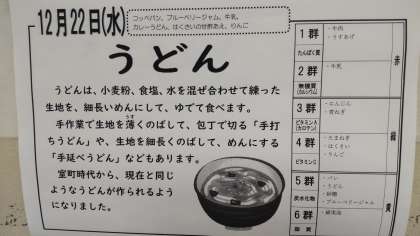 12月22日(水)
コッペパン、ブルーベリージャム、牛乳、
カレーうどん、はくさいのゼ酢あえ、りんご
うどん
うどんは、小麦粉、食塩、水を混ぜ合わせて練った
生地を、細長いめんにして、ゆでて食べます。
手作業で生地を薄くのばして、包丁で切る「手打
ちうどん」や、生地を細長くのばして、めんにする
「手延べうどん」などもあります。
室町時代から、現在と同じ
ようなうどんが作られるよう
になりました。
1群
たんぱく質
・牛肉
・うすあげ
赤
2群
無機質
(カルシウム)
・牛乳
3群
ビタミンA
(カロテン)
・にんじん
・青ねぎ
4群
ビタミンC
・たまねぎ
・はくさい
・りんご
緑
5群
炭水化物
・パン
・うどん
・砂糖
・ブルーベリージャム
黄
6群
脂質